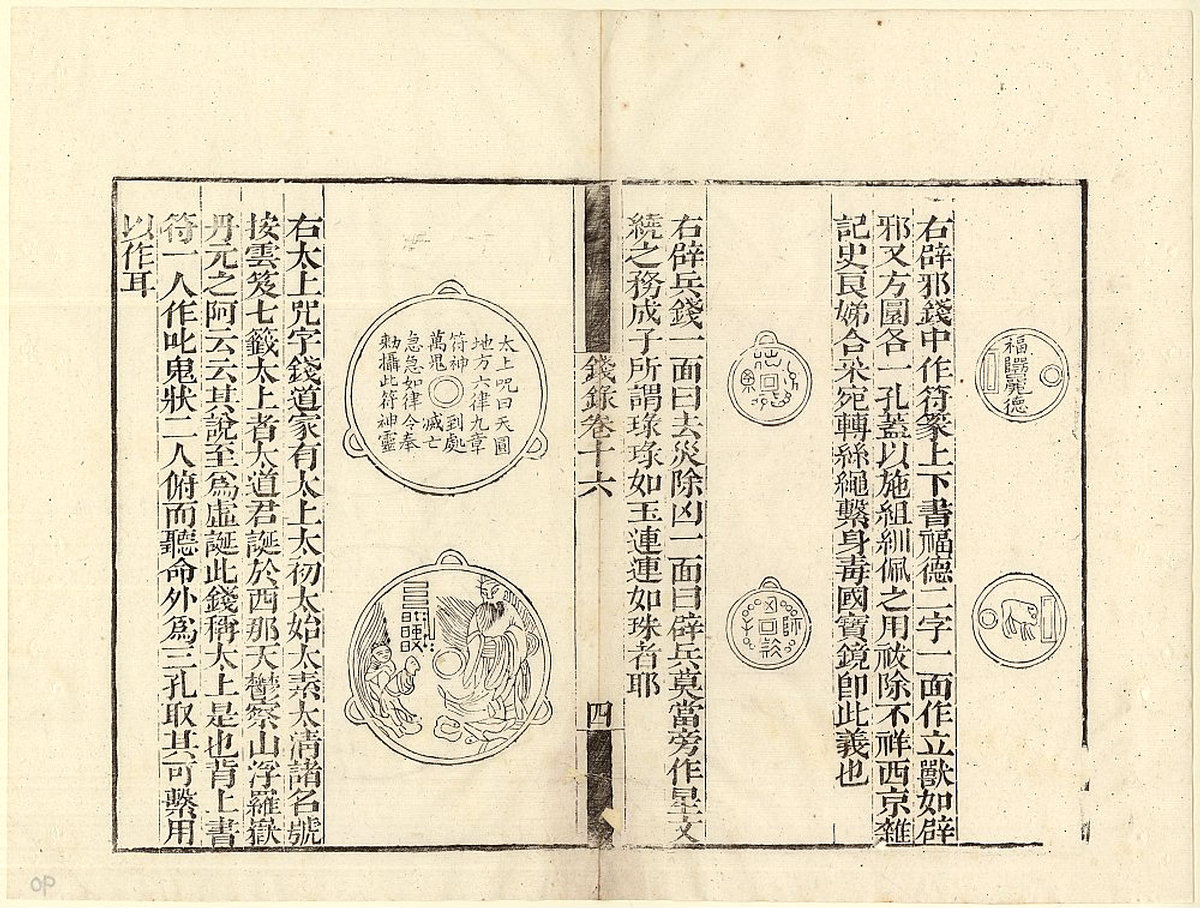 福德
右辟邪錢中作符篆上下書福德二字一面作立獸如辟
邪又方圜各一孔蓋以施組紃佩之用祓除不祥西京雜
記史良娣合采宛轉絲繩繫身毒國寶鏡卽此義也
右辟兵錢一面曰去災除凶一面曰辟兵莫當旁作星文
繞之務成子所謂琭琭如玉連連如珠者耶
錢錄卷十六
四
太上咒曰天圓
地方六律九章
符神到處
萬鬼滅亡
急急如律令奉
勑攝此符神靈
右太上咒字錢道家有太上太初太始太素太清諸名號
按雲笈七籤太上者大道君誕於西那天鬱察山浮羅嶽
丹元之阿云云其說至爲虛誕此錢稱太上是也背上書
符一人作叱鬼狀二人俯而聽命外爲三孔取其可繫用
以作耳